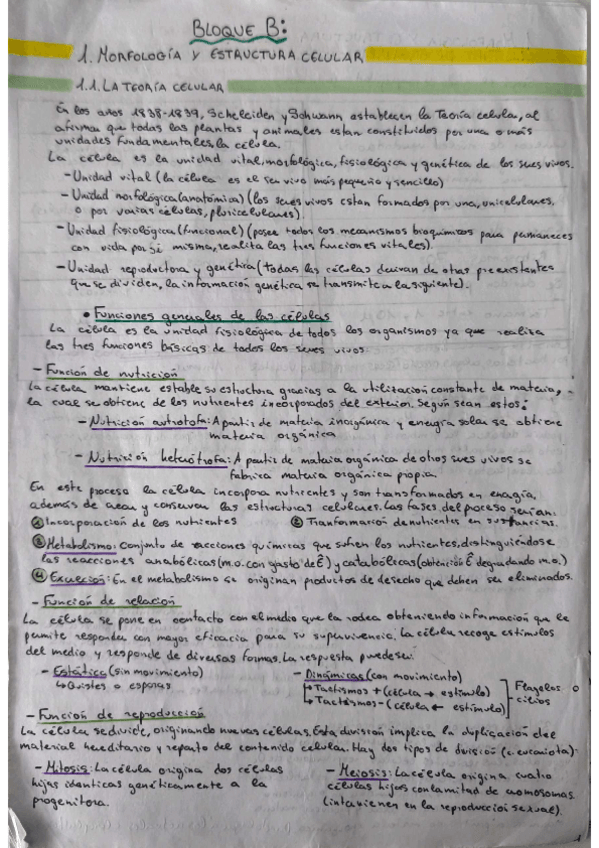 BLOQUE B:
1. MORFOLOGÍA Y ESTRUCTURA CELULAR
1.1. LA TEORÍA CELULAR
En los años 1838-1839, Scheleiden y Schwann establecen la Teoría celular, al
afirmar que todas las plantas y animales estan constituidos por una o más
unidades fundamentales, la célula.
La célula es la unidad vital, morfológica, fisiológica y genética de los seres vivos.
- Unidad vital (la célula es el ser vivo más pequeño y sencillo)
- Unidad morfológica (anatómica) (los seres vivos estan formados por una, unicelulares,
o por varias células, pluricelulares).
- Unidad fisiológica (funcional) (posee todos los mecanismos bioquímicos para permanecer
con vida por sí misma, realita las tres funciones vitales).
- Unidad reproductora y genética (todas las células derivan de otras preexistentes
que se dividen, la información genética se transmite a la siguiente).
• Funciones generales de las células
La célula es la unidad fisiológica de todos los organismos ya que realiza
las tres funciones básicas de todos los seres vivos.
- Función de nutrición
La célula mantiene estable su estructura gracias a la utilización constante de materia,
la cual se obtiene de los nutrientes incorporados del exterior. Según sean estos:
- Nutrición autrotofa: A partir de materia inorgánica y energía solar se obtiene
materia orgánica
- Nutrición heterótrofa: A partir de materia orgánica de otros seres vivos se
fabrica materia orgánica propia.
En este proceso la célula incorpora nutrientes y son transformados en energía,
además de crear y conservar las estructuras celulares. Las fases del proceso serían:
① Incorporación de los nutrientes ② Tranformación de nutrientes en sustancias.
③ Metabolismo: Conjunto de reacciones químicas que sufren los nutrientes, distinguiéndose
las reacciones anabólicas (m.o. con gasto de Ê) y catabólicas (obtención Ê degradando m.o.)
④ Excreción: En el metabolismo se originan productos de desecho que deben ser eliminados.
- Función de relación
La célula se pone en contacto con el medio que la rodea obteniendo información que le
permite responder con mayor eficacia para su supervivencia. La célula recoge estímulos
del medio y responde de diversas formas. La respuesta puede ser:
- Estática (sin movimiento) - Dinámicas (con movimiento)
↳ Quistes o esporas ↳ Tactismos + (célula → estímulo) Flagelos o
↳ Tactismos - (célula ← estímulo) cilios
- Función de reproducción
La célula se divide, originando nuevas células. Esta división implica la duplicación del
material hereditario y reparto del contenido celular. Hay dos tipos de división (c. eucariota):
- Mitosis: La célula origina dos células - Meiosis: La célula origina cuatro
hijas identicas genéticamente a la células hijas con la mitad de cromosomas
progenitora. (intervienen en la reproducción sexual).
1